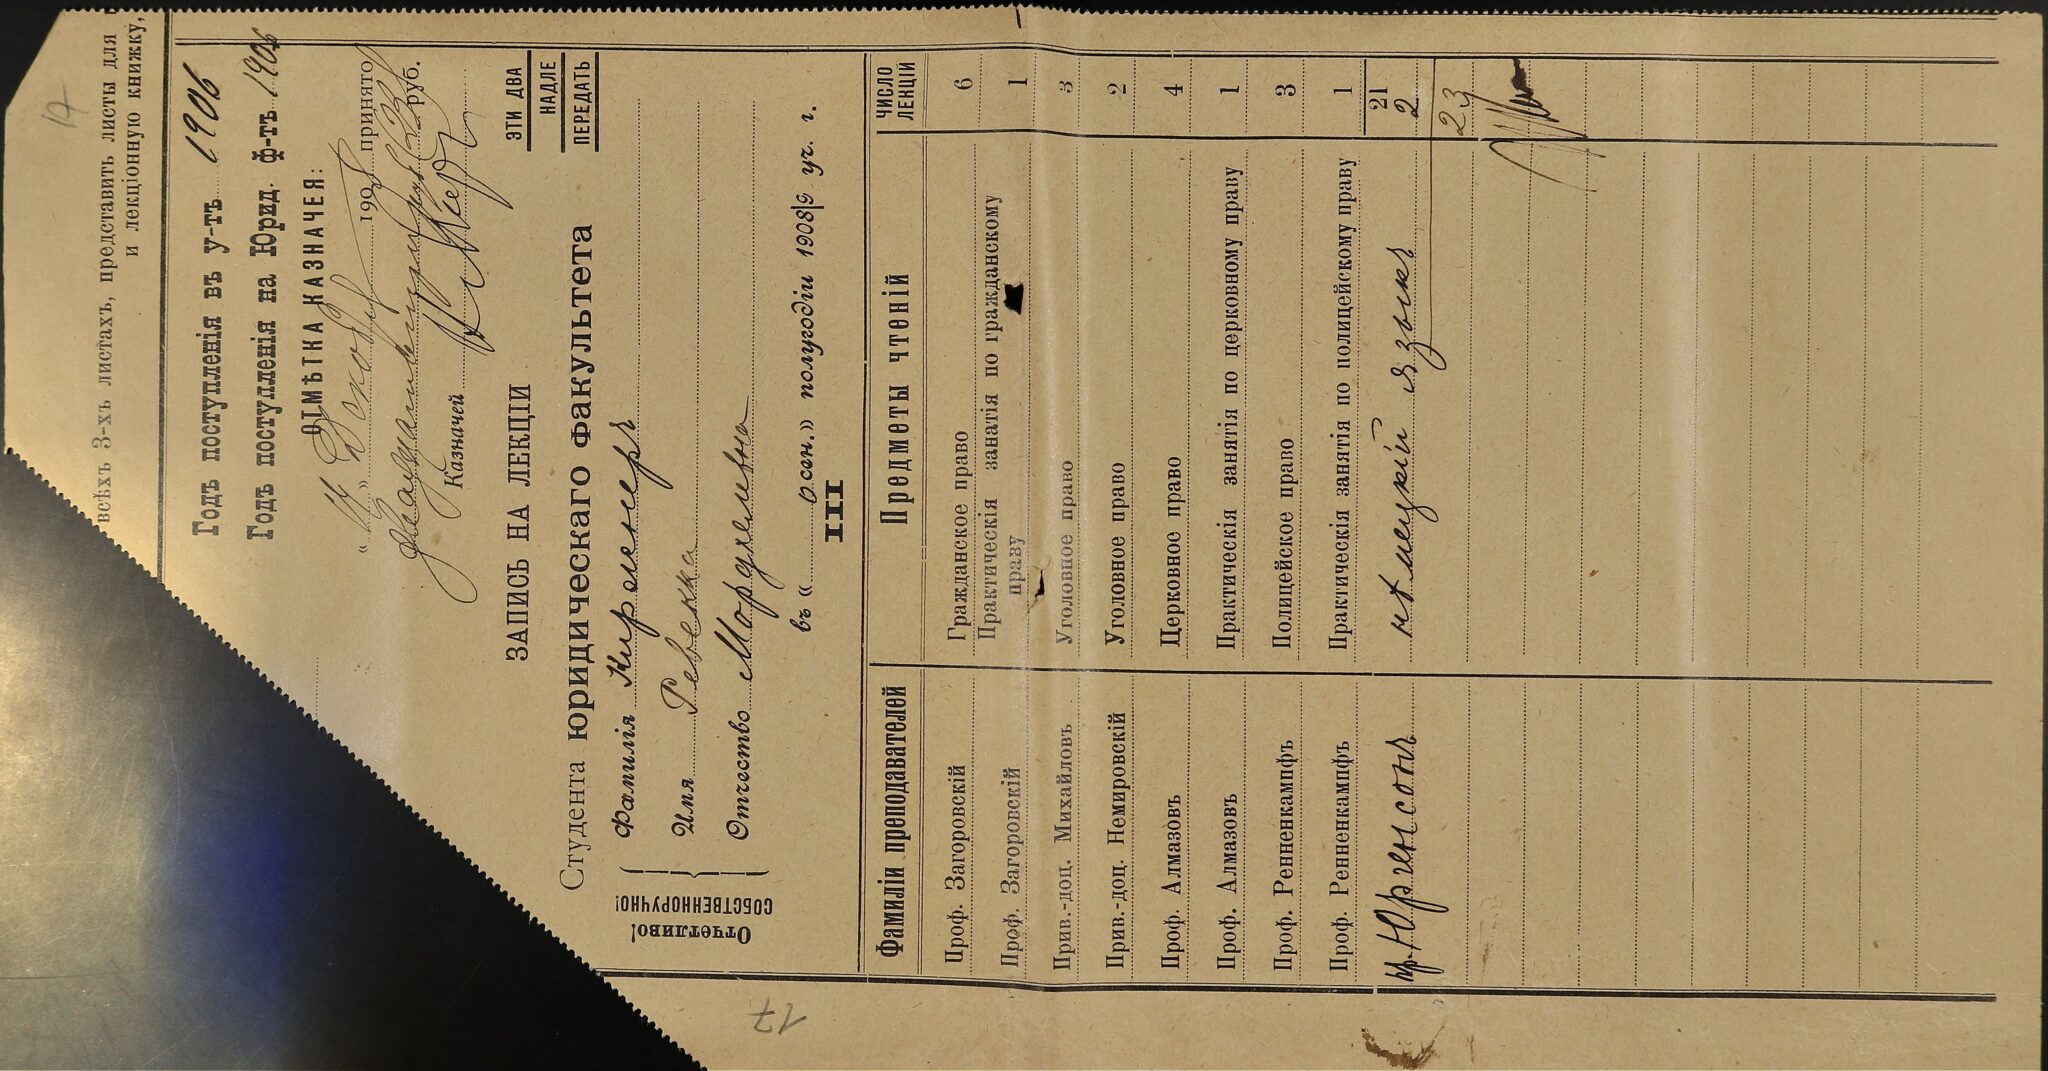 всѣхъ 3-хъ листахъ, представить листы для
и лекціонную книжку,
17
Годъ поступленія въ у-тъ 1906
Годъ поступленія на Юрид. ф-тъ 1906
ОТМѢТКА КАЗНАЧЕЯ:
190 принято
руб.
Казначей
ЗАПИСЬ НА ЛЕКЦІИ
ЭТИ ДВА
НАДЛЕ
ПЕРЕДАТЬ
Студента юридическаго факультета
Отчетливо!
СОБСТВЕННОРУЧНО!
Фамилія
Имя Ревекка
Отчество Мордхелевна
въ «осен.» полугодіи 1908/9 уч. г.
III
Фамиліи преподавателей Предметы чтеній ЧИСЛО ЛЕКЦІЙ
Проф. Загоровскій Гражданское право 6
Проф. Загоровскій Практическія занатія по гражданскому 1
праву
Прив.-доц. Михайловъ Уголовное право 3
Прив.-доц. Немировскій Уголовное право 2
Проф. Алмазовъ Церковное право 4
Проф. Алмазовъ Практическія занятія по церковному праву 1
Проф. Ренненкампфъ Полицейское право 3
Проф. Ренненкампфъ Практическія занятія по полицейскому праву 1
21
пр. Юргенсонъ нѣмецкій языкъ 2
23
17